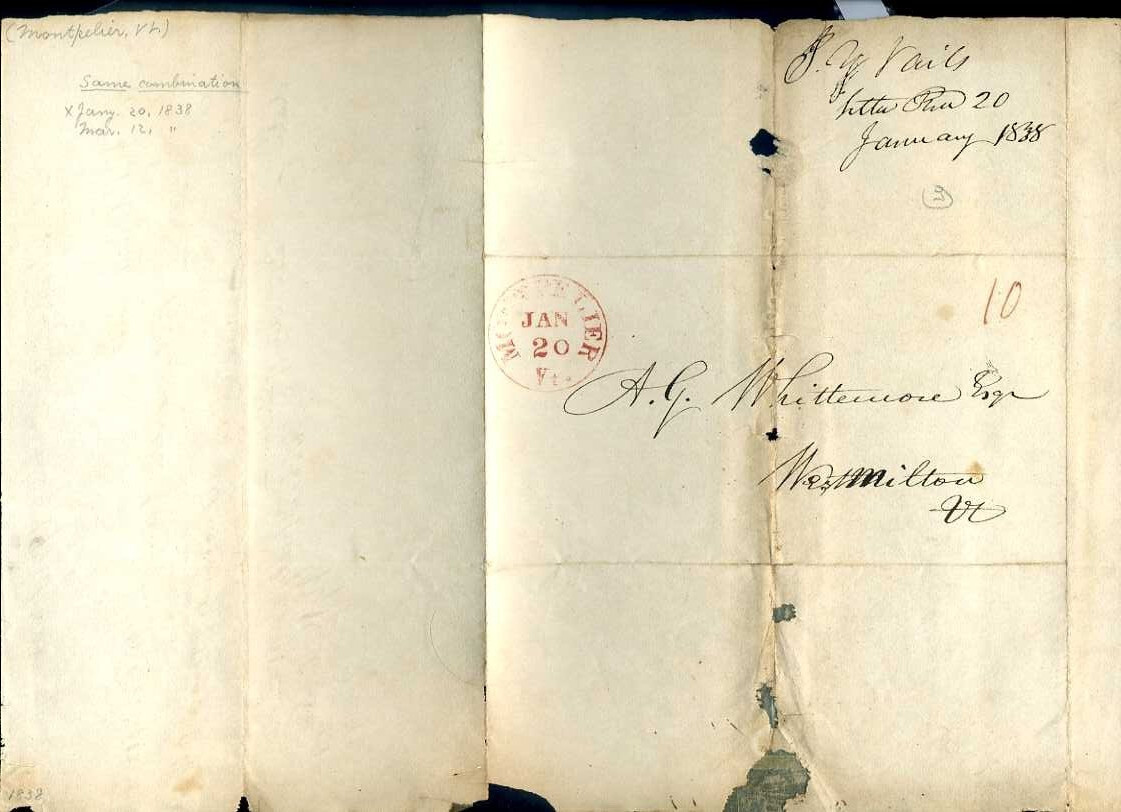 (Montpelier, Vt)
Same combination
x Jany. 20, 1838
Mar. 12, "
J. Y. Vails
letter Recd 20
January 1838
3
10
MONTPELIER
JAN
20
Vt.
A. G. Whittemore Esqr
West Milton
Vt
1838